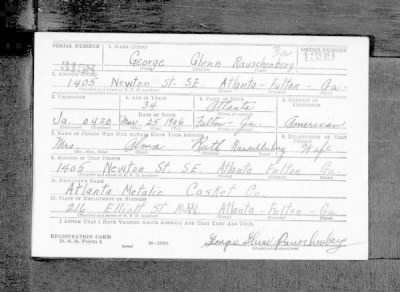 SERIAL NUMBER 1. NAME (Print) ORDER NUMBER
George Glenn Rauschenberg
(First) (Middle) (Last)
1405 Newton St. S.E. Atlanta - Fulton - Ga.
3. TELEPHONE 4. AGE IN YEARS 5. PLACE OF BIRTH 6. COUNTRY OF CITIZENSHIP
34 Atlanta
DATE OF BIRTH
Ja. 0420 Mar. 25 1906 Fulton - Ga. American
7. NAME OF PERSON WHO WILL ALWAYS KNOW YOUR ADDRESS 8. RELATIONSHIP OF THAT PERSON
Mrs. Alma Ruth Rauschenberg Wife
9. ADDRESS OF THAT PERSON
1405 Newton St. S.E. Atlanta - Fulton Ga
10. EMPLOYER'S NAME
Atlanta Metalic Casket Co.
11. PLACE OF EMPLOYMENT OR BUSINESS
216 Elliott St. N.W. Atlanta - Fulton - Ga.
I AFFIRM THAT I HAVE VERIFIED ABOVE ANSWERS AND THAT THEY ARE TRUE.
REGISTRATION CARD
D. S. S. FORM 1
George Glenn Rauschenberg